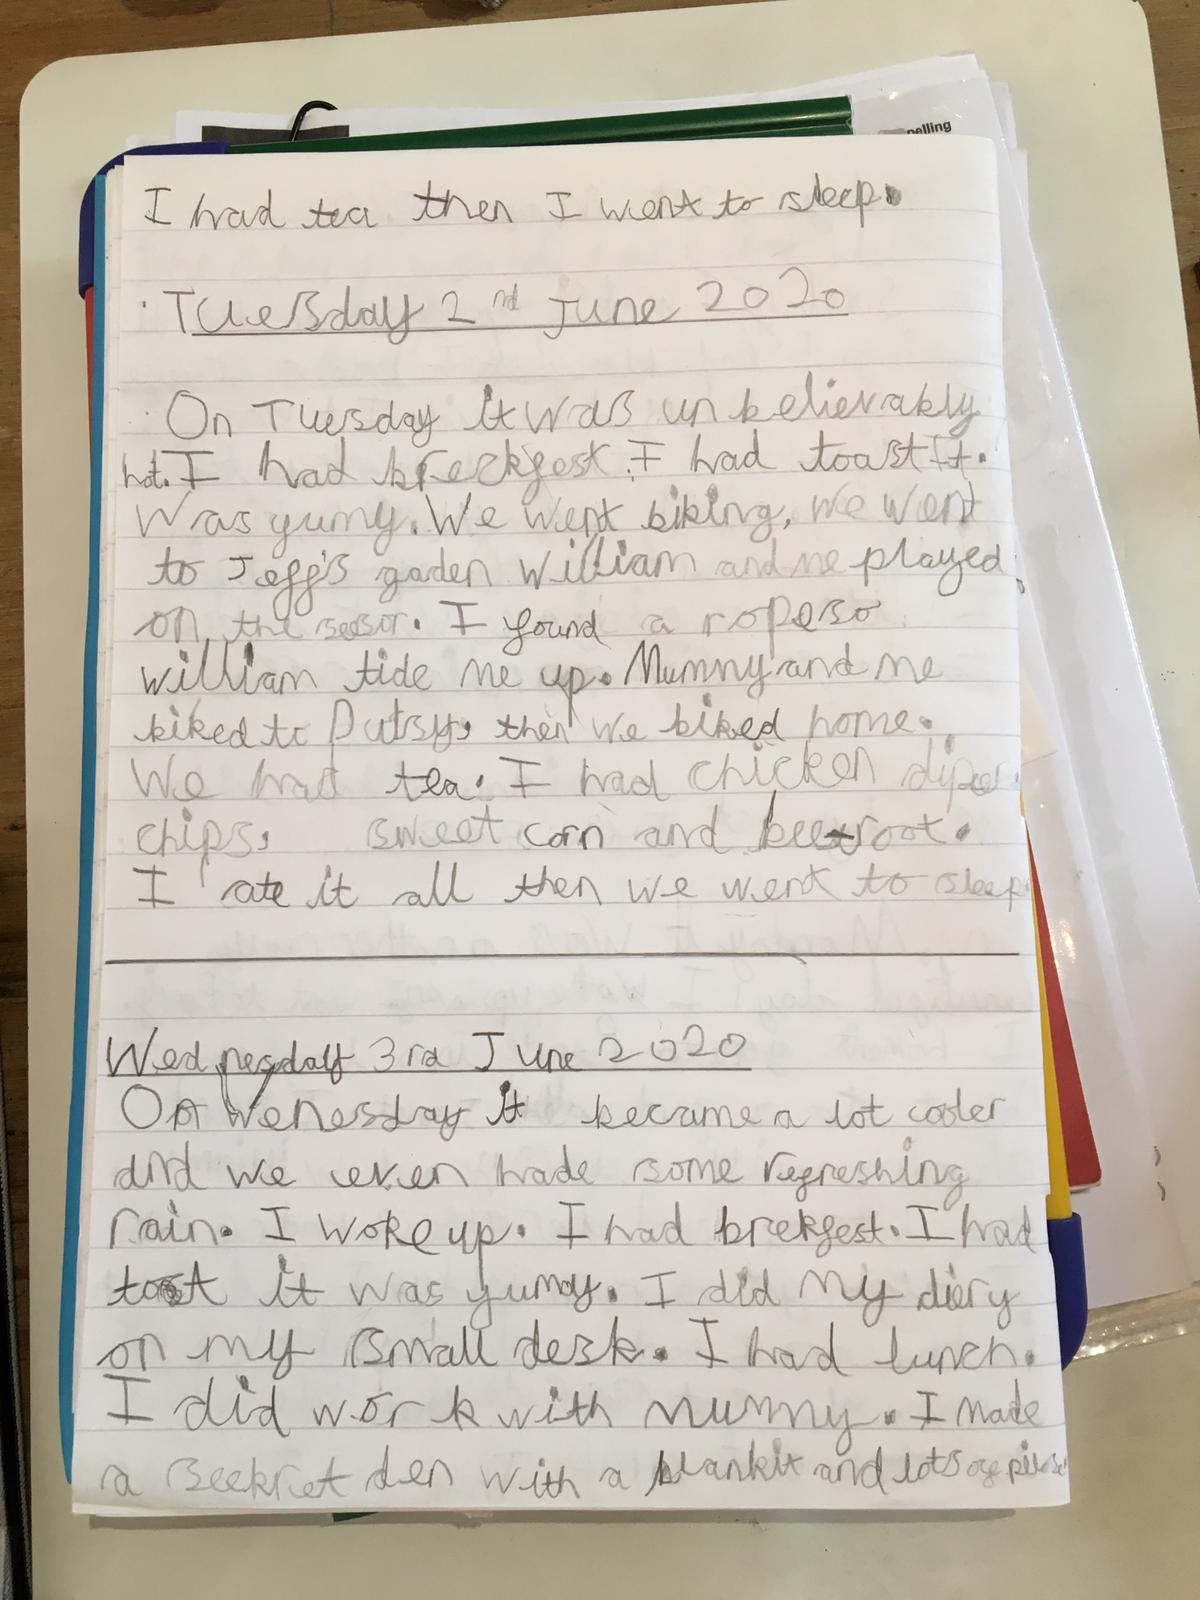 pelling
I had tea then I went to sleep.
Tuesday 2nd June 2020
On Tuesday it was unbelievably
hot. I had breckfest. I had toast It.
was yumy. We went biking, we went
to Jeff's gaden William and me played
on the seesor. I found a rope so
william tide me up. Mummy and me
biked to then we biked home.
We had tea. I had chicken diper
chips, sweet corn and beetroot.
I ate it all then we went to sleep
Wednesday 3rd June 2020
On Wenesday it became a lot cooler
and we even hade some refreshing
rain. I woke up. I had brekfest. I had
tost it was yummy. I did my diery
on my small desk. I had lunch.
I did work with mummy. I made
a seekret den with a blankit and lots of